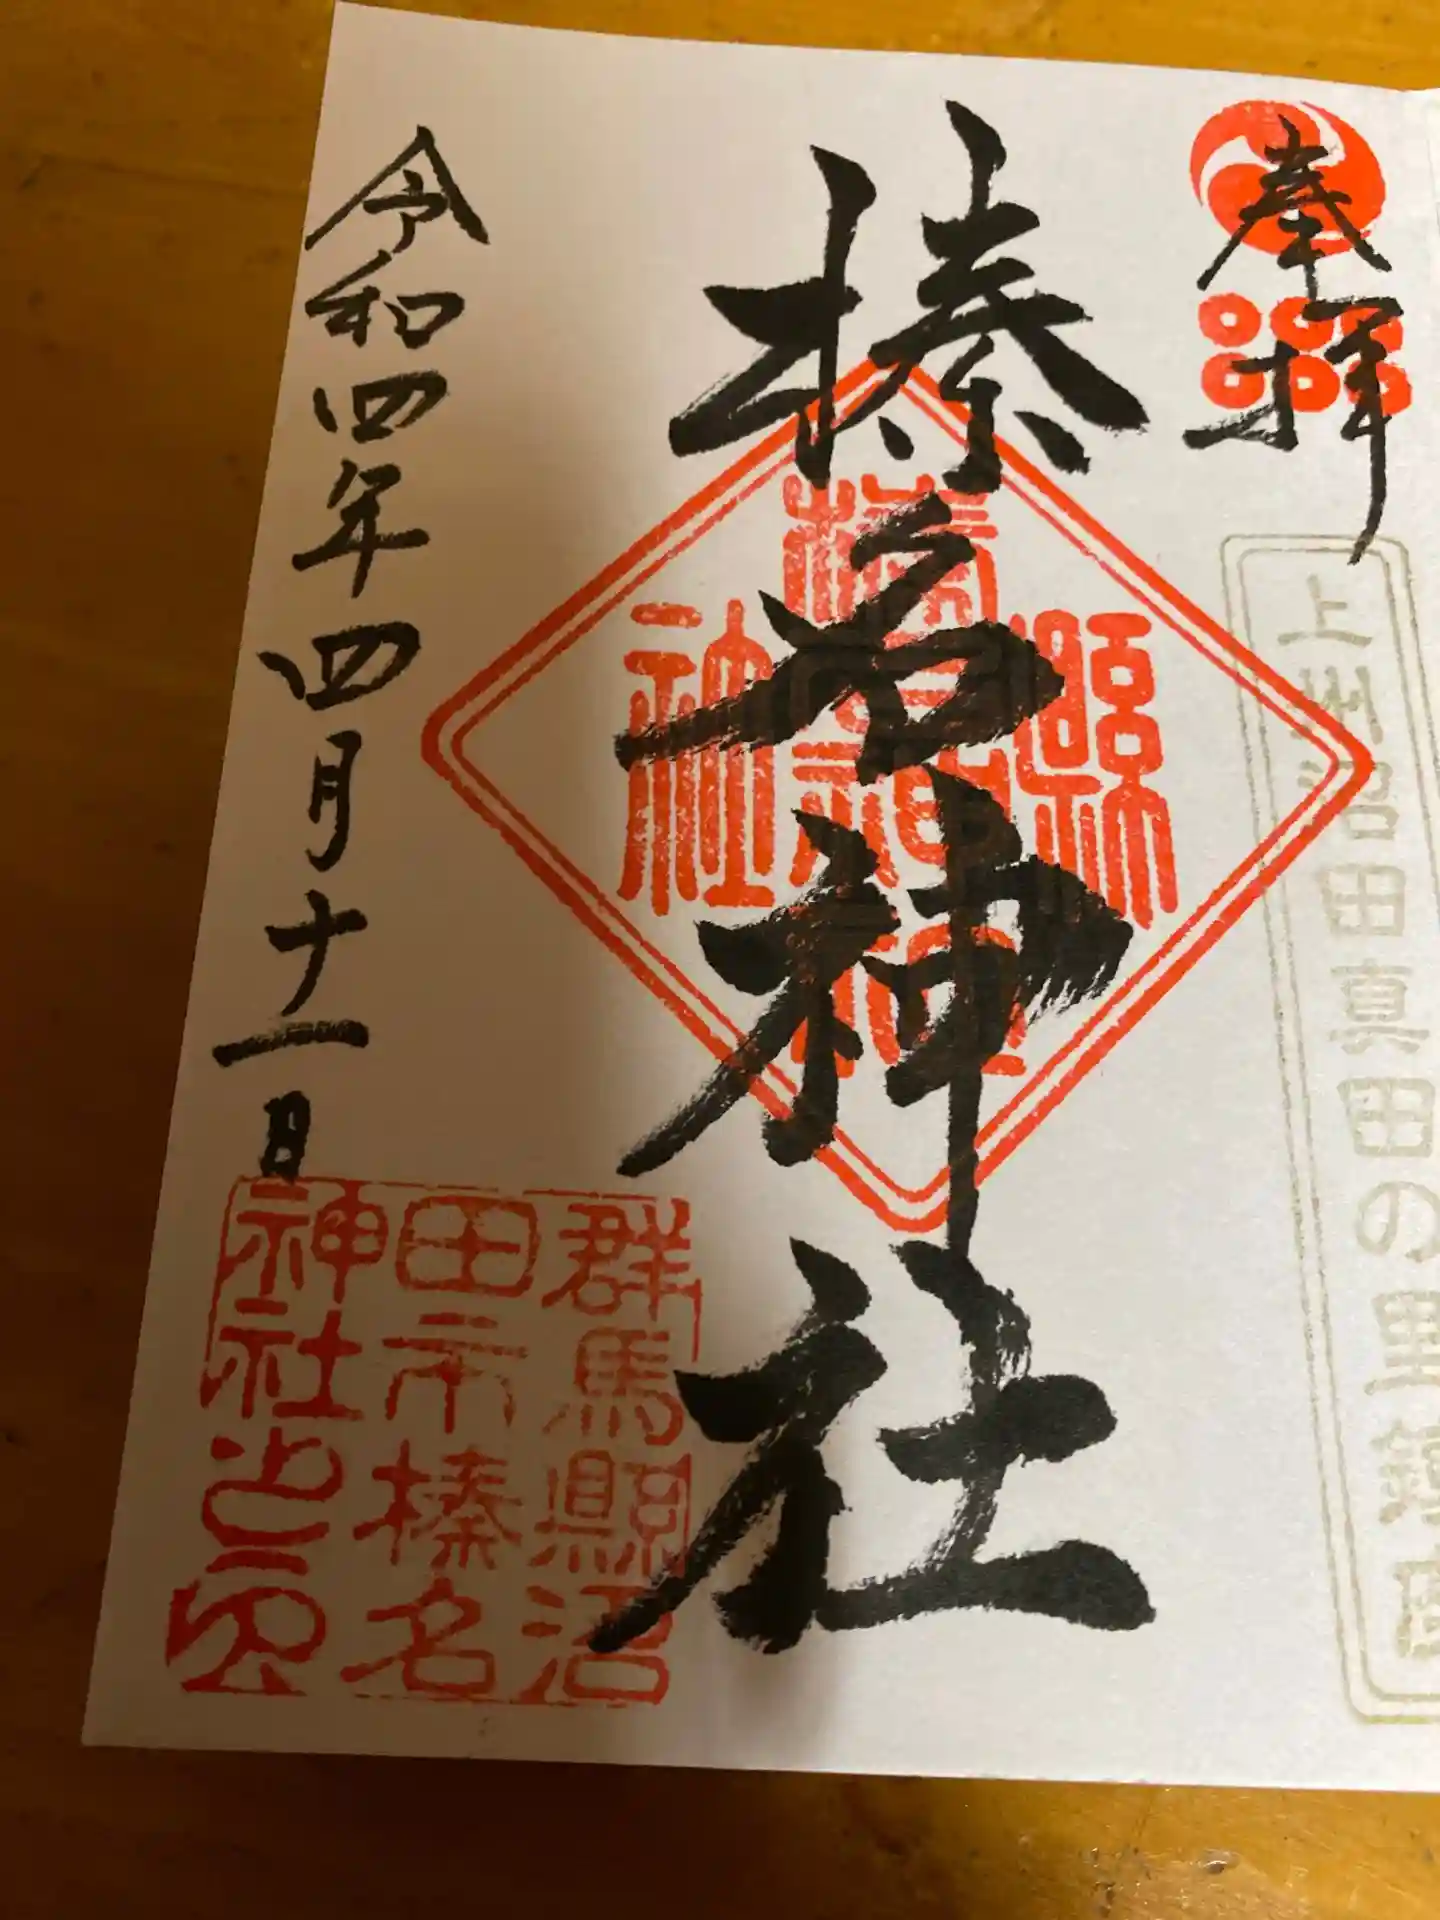 奉拝
上州沼田真田の里鎮座
榛名神社
縣榛名神社
令和四年四月十一日
群馬縣沼
田市榛名
神社之印